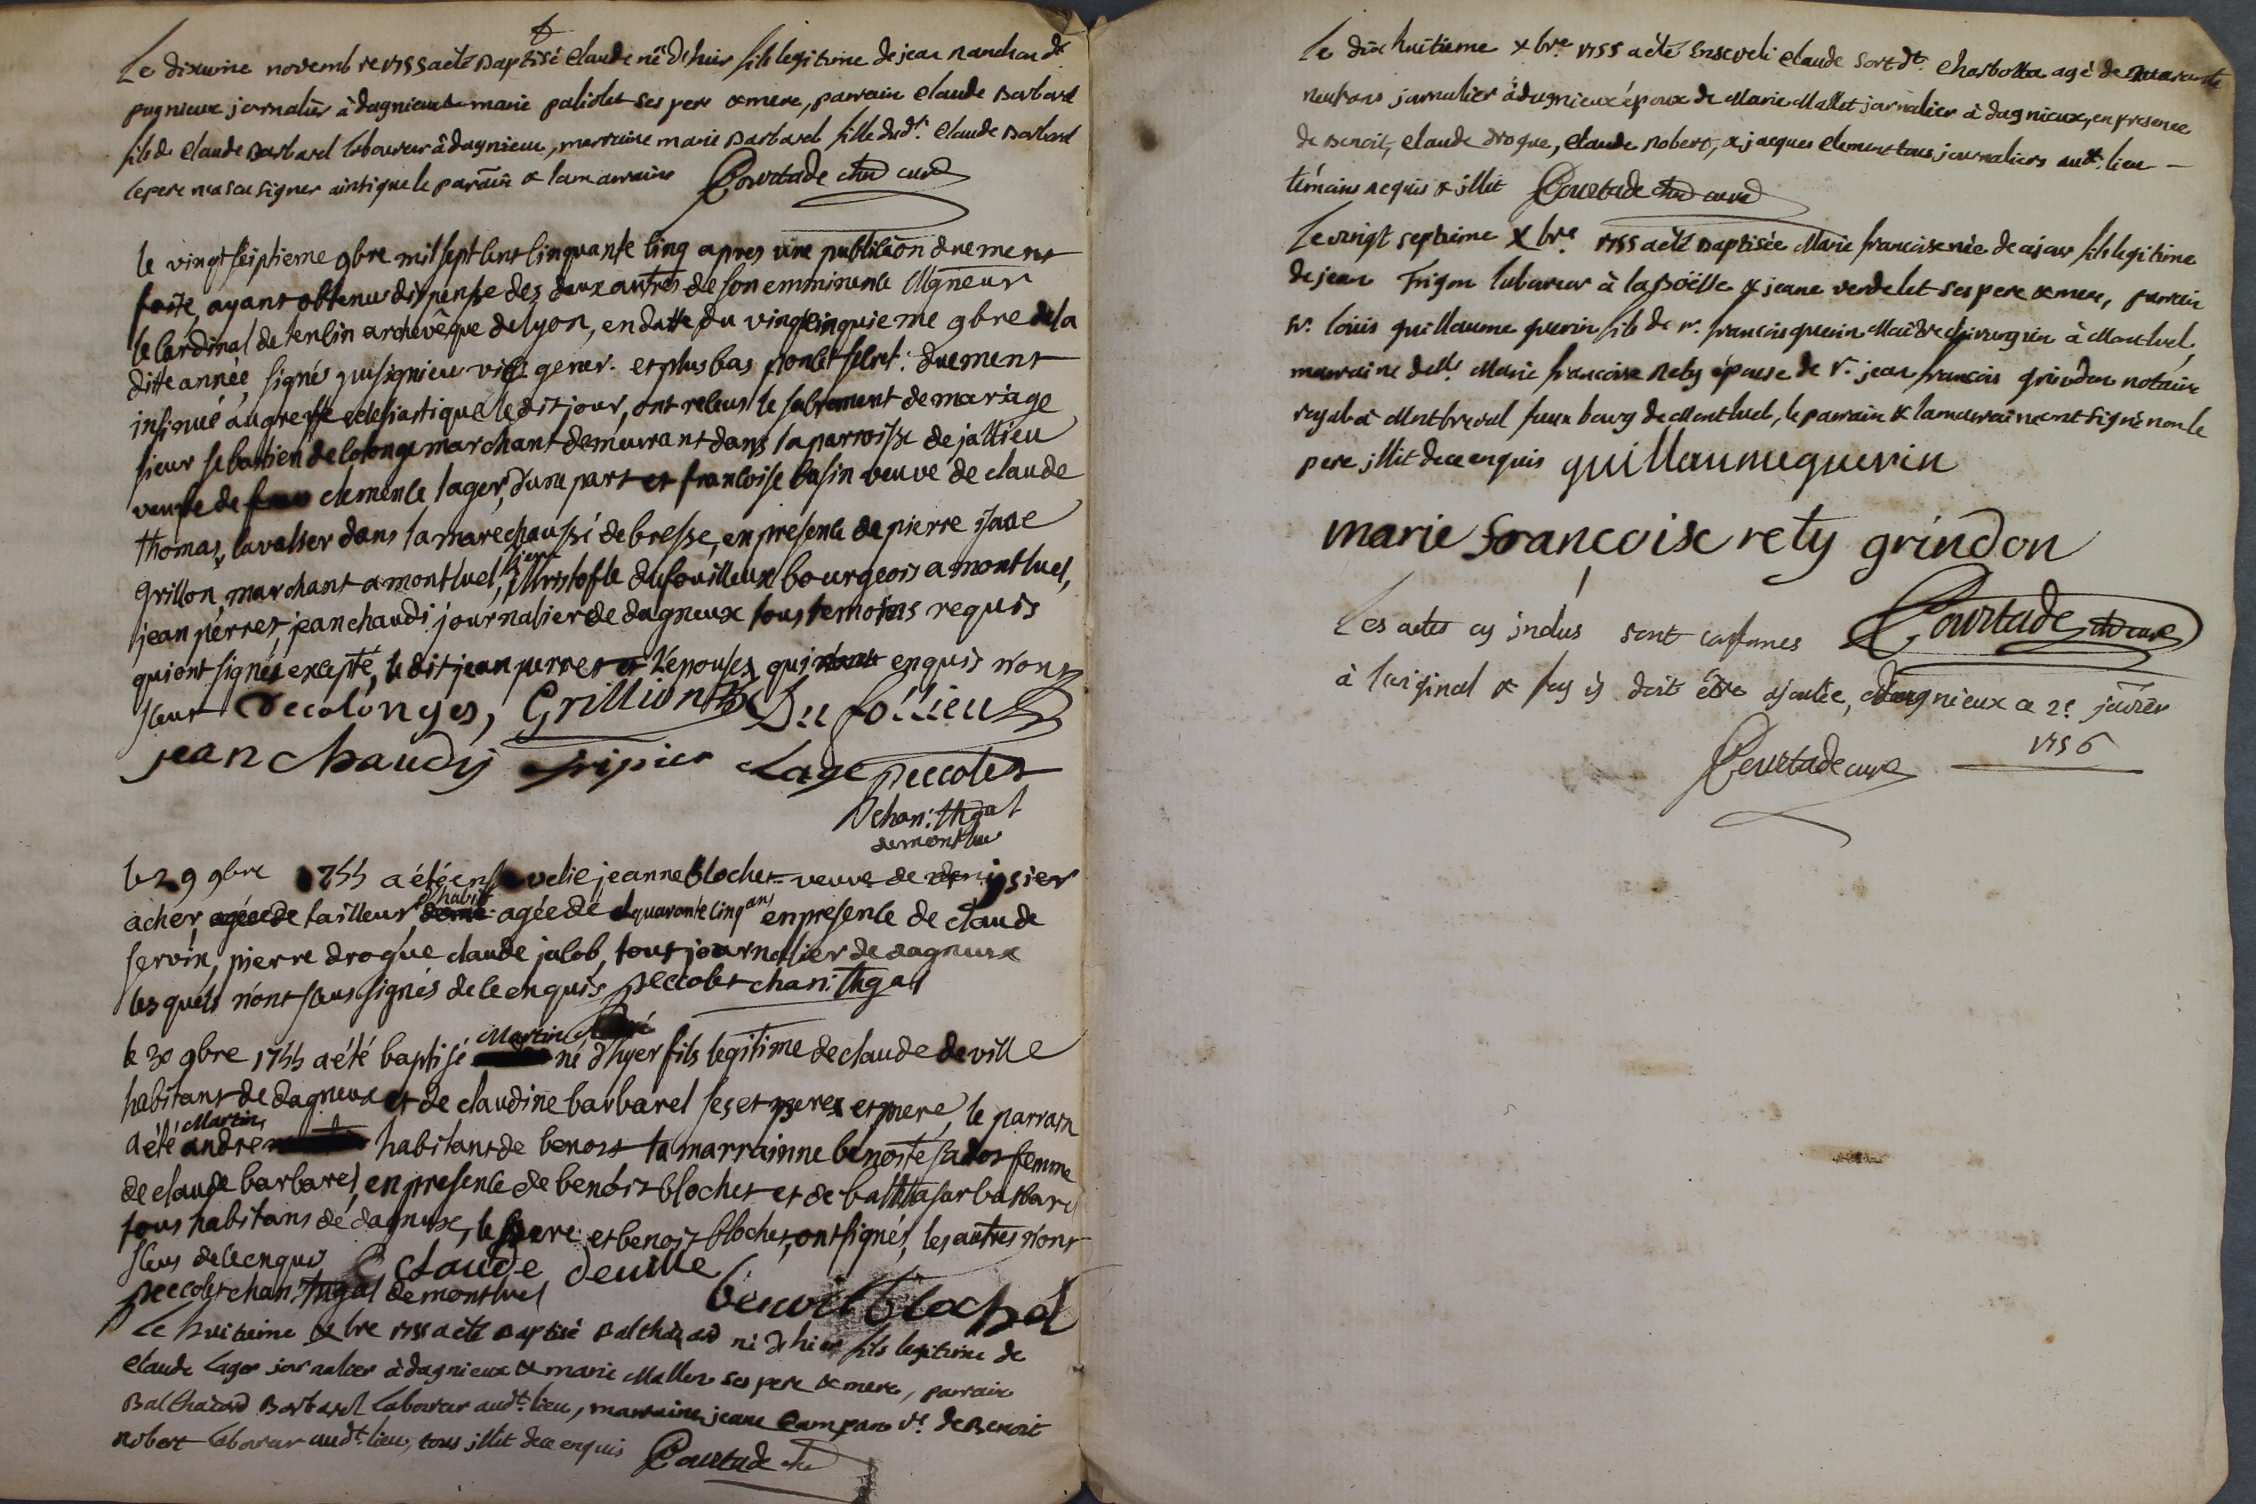 Le dixieme novembre 1755 a eté Baptisé Claude né d'hier fils legitime de jean nanchon dt
pugnieux jornalier à dagnieux & marie paliolet ses pere & mere, parrain Claude Barbaret
fils de Claude Barbarel laboureur à dagnieu, marraine marie Barbarel fille dudt. Claude Barbarel
le pere na scu signer ainsi que le parain & la marraine Courtade curé
le vingt seiptieme 9bre mil sept cent cinquante cinq apres une publicãon duement
faite, ayant obtenu dispense des deux autres de son emminence Mgneur
le cardinal de tencin archevêque de lyon, en datte du vingt cinquieme 9bre de la
ditte année, signés vic. gener. et plus bas secret: duement
insinué au greffe eclesiastique le dit jour, ont receus le sacrement de mariage
sieur sebastien de colonge marchant demeurant dans la parroisse de jallieu
veufe de clemence lager, d'une part et francoise basin veuve de claude
thomas, cavalier dans la marechaussé de bresse, en presence de pierre isaac
grillon, marchant a montluel, sieur christofle dufouilleux bourgeois a montluel,
jean perret, jean chaudi journalier de dagneux tous temoins requis
qui ont signés excepté, le dit jean perret et l'epouse, qui enquis n'ont
sceus Decolonges, Grillion Du foilieu
jean chaudy fripier Lage peccolet
demontluel
le 29 9bre 1755 a été ensevelie jeanne blochet veuve de
acher, tailleur d'habit agée de quarante cinq ans en presence de claude
servin, pierre drogue claude jacob, tous journalier de dagneux
les quels n'ont sceus signés de ce enquis peccolet
le 30 9bre 1755 a été baptisé Martin André né d'hyer fils legitime de claude deville
habitant de dagneux et de claudine barbarel ses et peres et mere, le parrain
a été andre Martin habitant de benost la marrainne benoite sador femme
de claude barbarel, en presence de benoist blochet et de balthasar barbarel
tous habitans de dagneux, le pere et benoist blochet, ont signés, les autres n'ont
sceus de ce enquis claude deville
peccolet demontluel benoit blochet
Le huitieme Xbre 1755 a eté Baptisé Balthazard né d'hier fils legitime de
Claude Lager jornalier à dagnieux & marie Mallen ses pere & mere, parrain
Balthazard Barbarel Laboureur audt. lieu, marraine jeane Campan ve. de Benoit
Robert Laboureur audt. lieu, tous illit. de ce enquis Courtade
Le dix huitieme Xbre 1755 a eté Enseveli Claude Sort dt. Charbotta agé de quarante
neuf ans jornalier à dagnieux époux de Marie Mallet jornalier à dagnieux, en presence
de Benoit, Claude droque, Claude Robert, & jacques Clement tous journaliers audt. lieu
témoins requis & illit Courtade curé
Le vingt septieme Xbre 1755 a eté Baptisée Marie francoise née de cejour fils legitime
de jean Frigon laboureur à la Boësse & jeane verdelet ses pere & mere, parrain
sr. loüis guillaume guerin fils de sr. francois guerin Maître chirurgien à Montluel,
marraine delle. Marie francoise Rety épouse de sr. jean francois grindon notaire
royal à Montbreval faux bourg de Montluel, le parrain & la marraine ont signé non le
pere illit de ce enquis guillaumeguerin
marie francoise rety grindon
Les actes cy inclus sont conformes Courtade curé
à l'original & foy y doit être ajoutée, à Dagnieux ce 2e. janvier
1756
Courtade curé